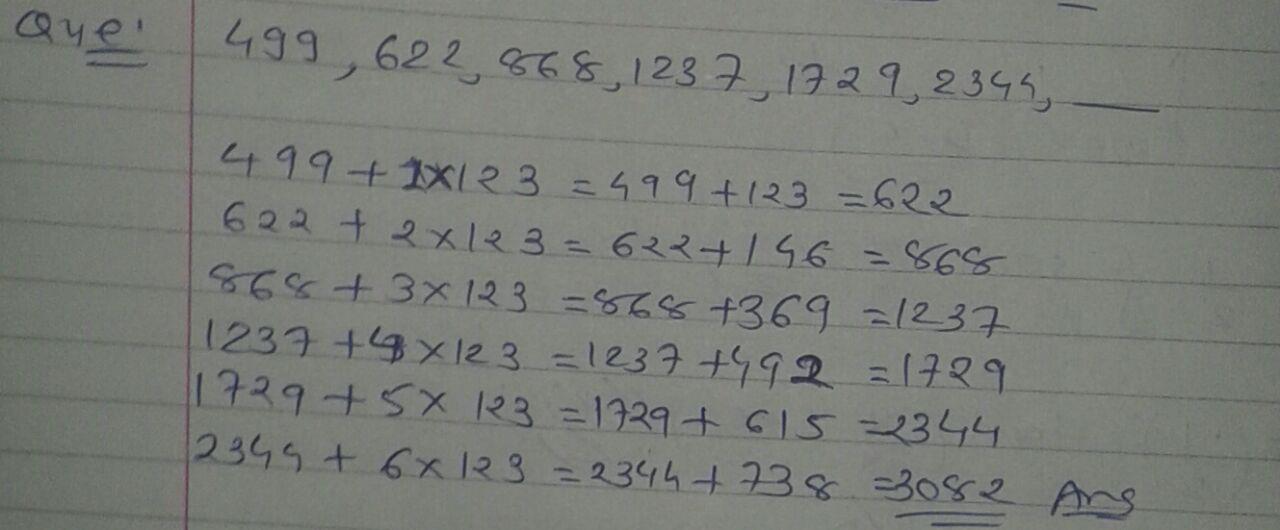 Que: 499, 622, 868, 1237, 1729, 2344, __
499 + 1×123 = 499 + 123 = 622
622 + 2×123 = 622 + 146 = 868
868 + 3×123 = 868 + 369 = 1237
1237 + 4×123 = 1237 + 492 = 1729
1729 + 5×123 = 1729 + 615 = 2344
2344 + 6×123 = 2344 + 738 = 3082 Ans